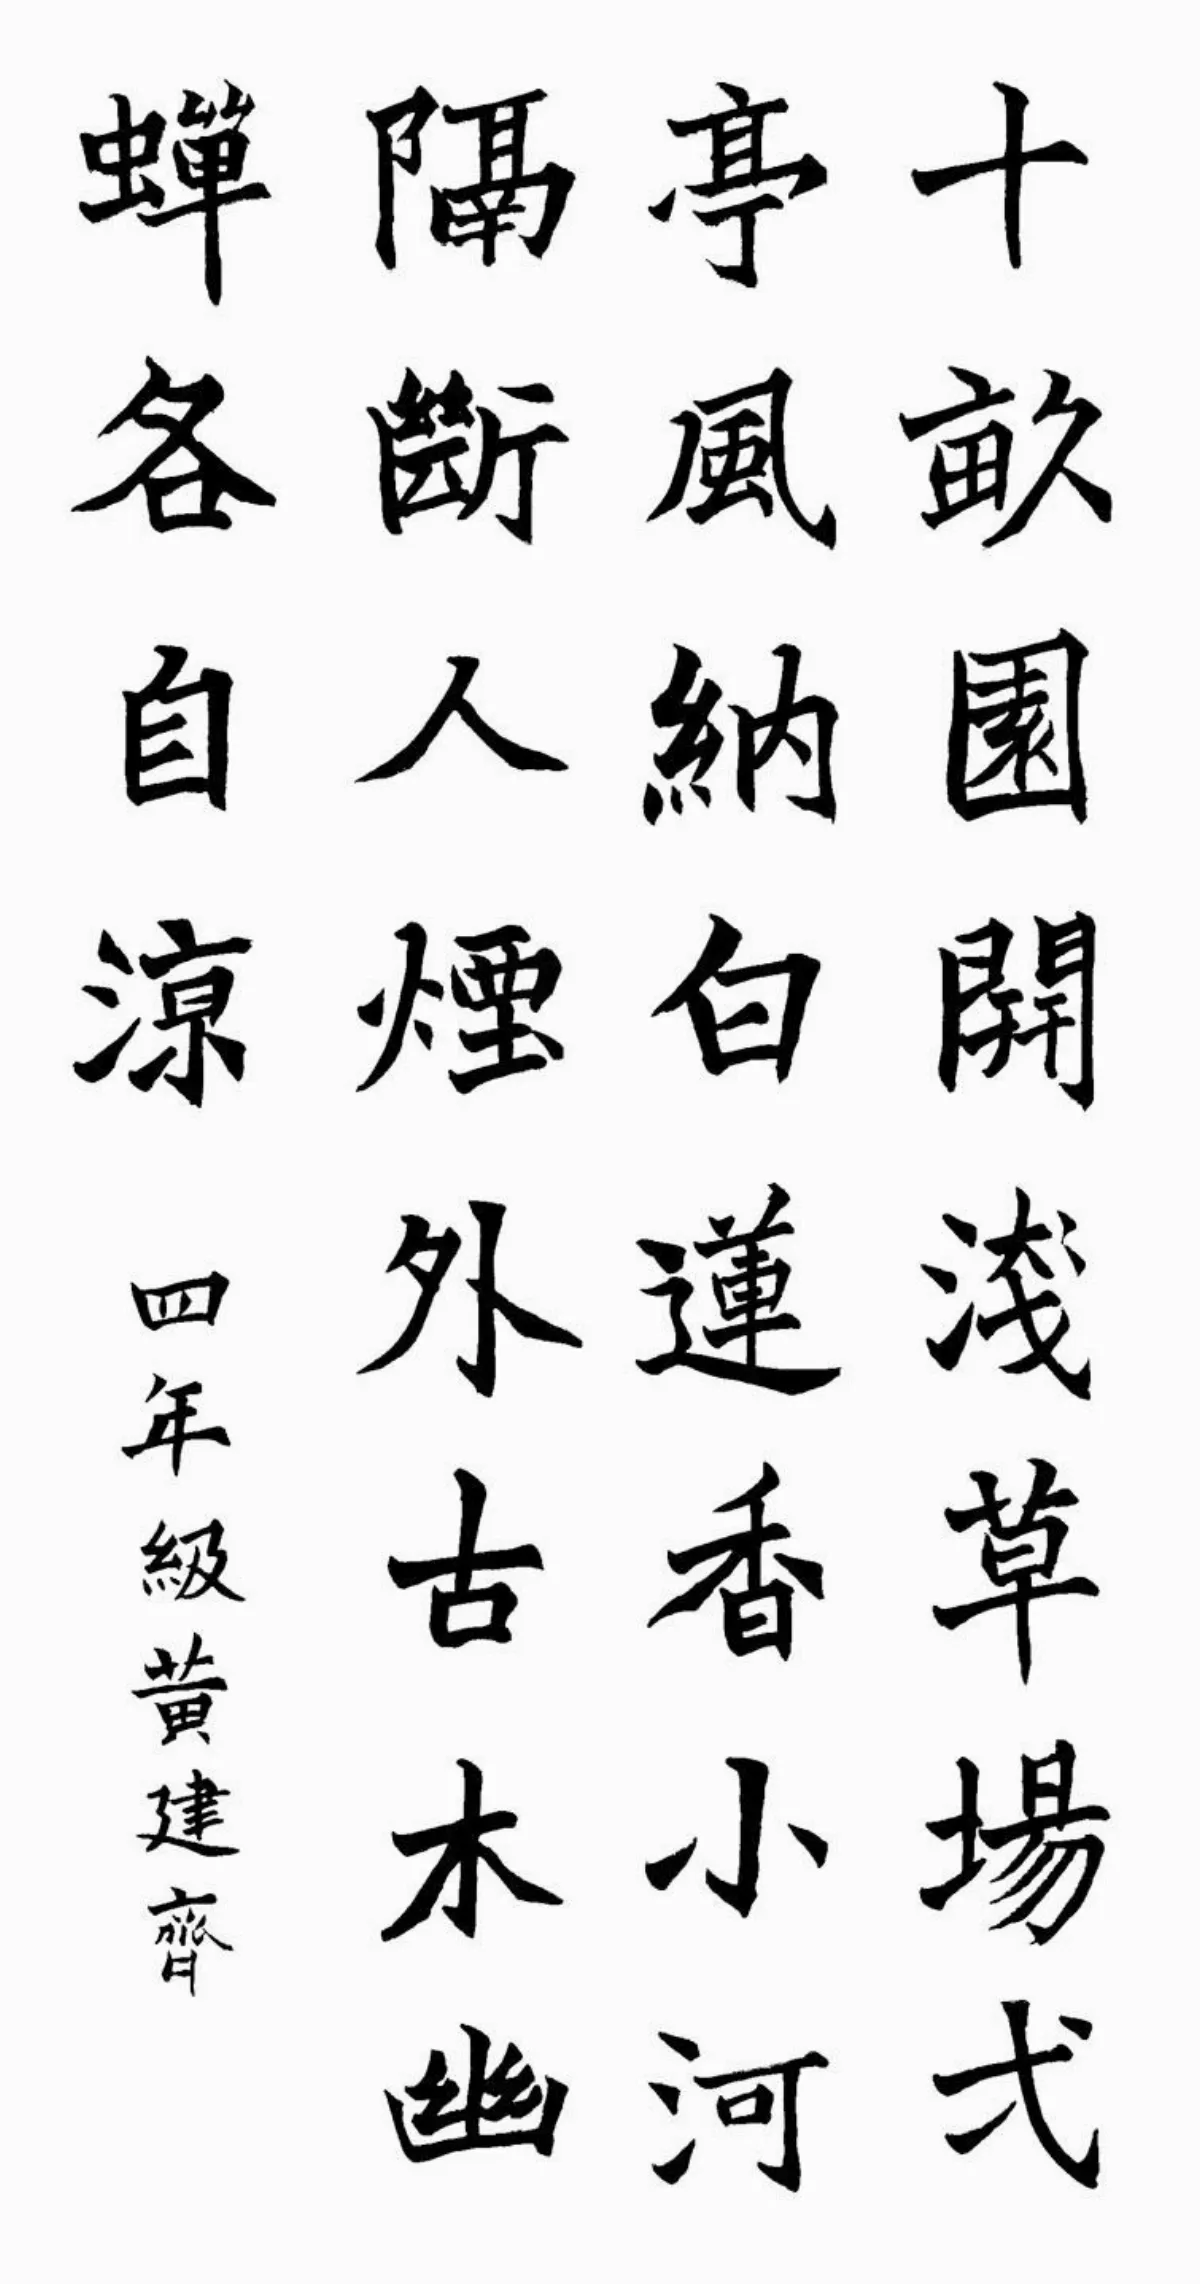 十畝園開淺草場弌
亭風納白蓮香小河
隔斷人煙外古木幽
蟬各自涼
四年級黃建齊